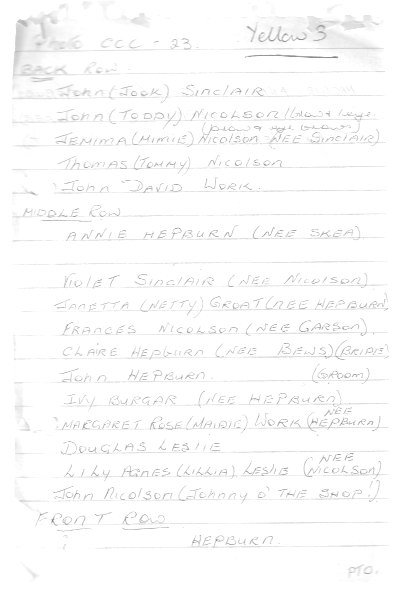 Yellow 3
Photo CCC - 23.
BACK ROW.
John (Jock) Sinclair
John (Toddy) Nicolson
JEMIMA (MIMIE) NICOLSON (NEE SINCLAIR)
Thomas (Tommy) Nicolson
John David Work.
MIDDLE ROW
ANNIE HEPBURN (NEE SKEA)
Violet Sinclair (NEE Nicolson)
JANETTA (NETTY) GROAT (NEE HEPBURN)
FRANCES NICOLSON (NEE GARSON),
CLAIRE HEPBURN (NEE BEWS) (BRIDE)
John HEPBURN. (GROOM)
IVY BURGAR (NEE HEPBURN)
MARGARET ROSE (MAIDIE) WORK (NEE HEPBURN)
DOUGLAS LESLIE
LILY AGNES (LILLIA) LESLIE (NEE NICOLSON)
John Nicolson (Johnny o' THE SHOP!)
FRONT ROW
? HEPBURN.
PTO.